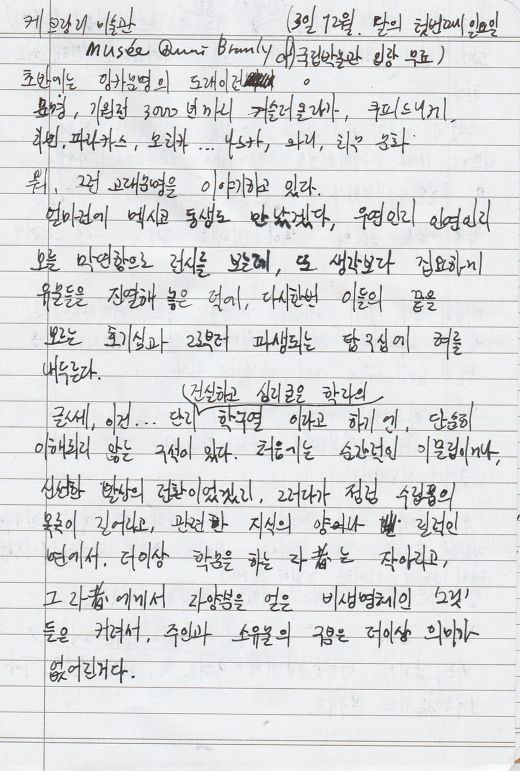 케 브랑리 미술관 (3월 7일 2월. 달의 첫번째 일요일
Musée Quai Branly 에 국립박물관 입장 무료)
초반에는 잉카문명의 도래이전
문명, 기원전 3000년마다
차빈, 파라카스, 모티카 ... 나스카, 와리, 치무 문화
뭐, 그런 고대문명을 이야기하고 있다.
얼마전에 멕시코 동생도 만났겠다, 우연인지 인연인지
오늘 막연함으로 전시를 보는데, 또 생각보다 집요하게
유물들을 진열해 놓은 덕에, 다시한번 이들의 끝을
모르는 호기심과 그로부터 파생되는 탐구심에 혀를
내두른다.
(건실하고 심리묘은 학자의
글쎄, 이건... 단지 학구열 이라고 하기엔, 단순히
이해되지 않는 구석이 있다. 처음에는 순간적인 이끌림이거나,
신선한 발상의 전환이었겠지, 그러다가 점점 수집품의
목록이 길어지고, 관련한 지식의 양이나 질적인
면에서, 더이상 학문을 하는 자者는 작아지고,
그 자者에게서 자양분을 얻은 비생명체인 '그것'
들은 커져서, 주인과 소유물의 구분은 더이상 의미가
없어진거다.